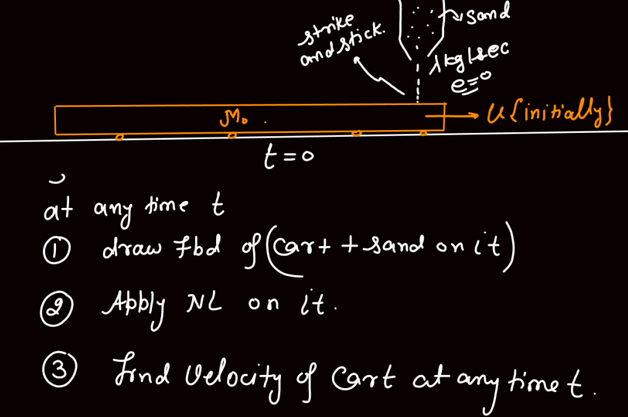 strike and stick.
sand
λ kg/sec
e=0
M₀.
u {initially}
t=0
at any time t
① draw Fbd of (Cart + sand on it)
② Apply NL on it.
③ Find Velocity of Cart at any time t.